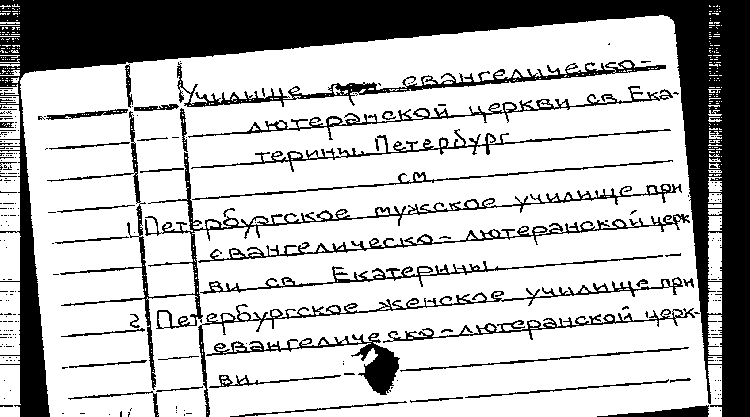 Училище при евангелическо-
лютеранской церкви св. Ека-
терины. Петербург
см.
1. Петербургское мужское училище при
евангелическо-лютеранской церк
ви св. Екатерины.
2. Петербургское женское училище при
евангелическо-лютеранской церк-
ви.